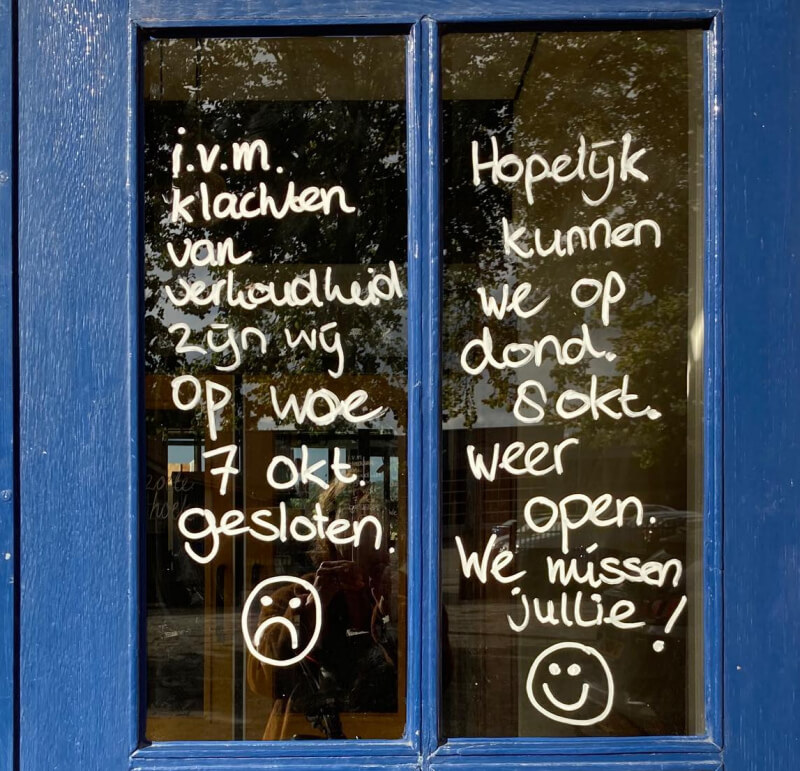 i.v.m.
klachten
van
verkoudheid
zijn wij
op woe
7 okt.
gesloten.
Hopelijk
kunnen
we op
dond.
8 okt.
weer
open.
We missen
jullie!